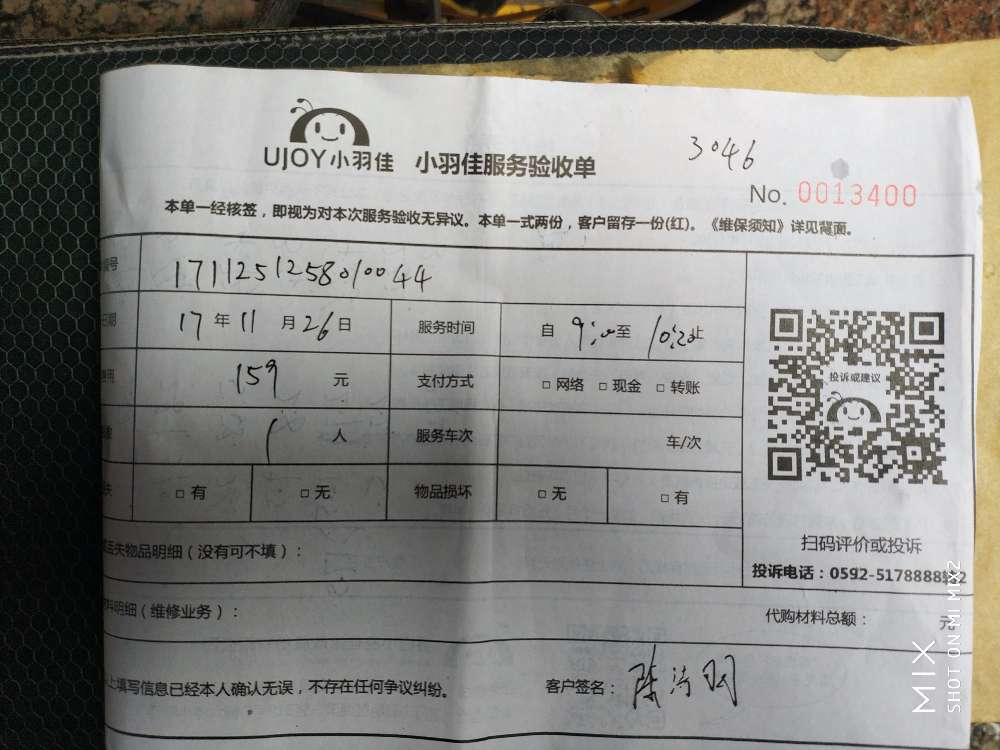 3046
UJOY小羽佳 小羽佳服务验收单
No. 0013400
本单一经核签，即视为对本次服务验收无异议。本单一式两份，客户留存一份(红)。《维保须知》详见背面。
号 1711251258010044
日期 17 年 11 月 26 日 服务时间 自 9:00 至 10:20 止
用 159 元 支付方式 □ 网络 □ 现金 □ 转账
1 人 服务车次 车/次
失 □ 有 □ 无 物品损坏 □ 无 □ 有
投诉或建议
丢失物品明细（没有可不填）：
扫码评价或投诉
投诉电话：0592-5178888转2
料明细（维修业务）： 代购材料总额： 元
上填写信息已经本人确认无误，不存在任何争议纠纷。 客户签名：陈
MIX
SHOT ON MI MIX2